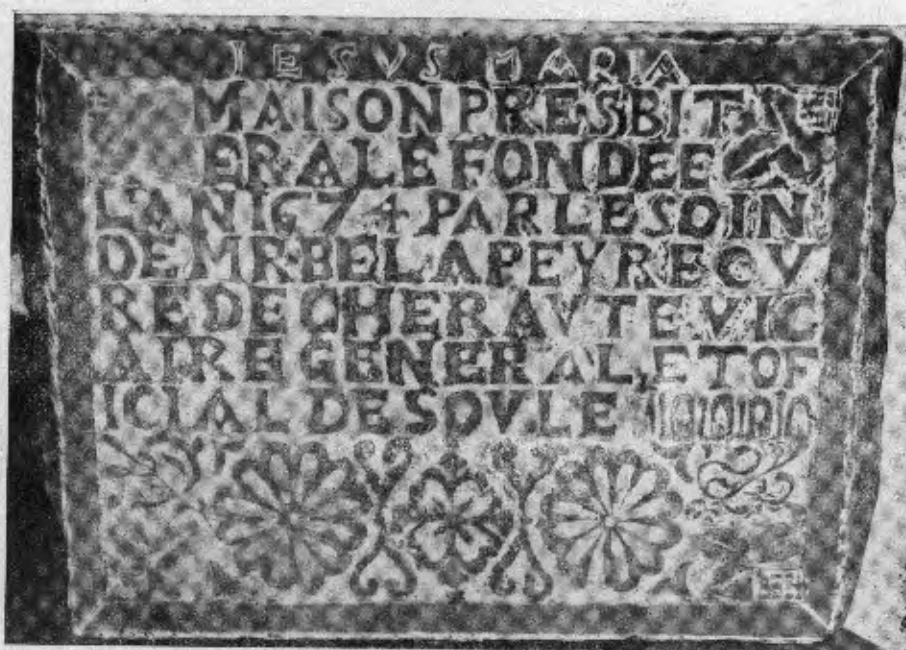 IESVS MARIA
MAISON PRESBIT
ERALE FONDEE
LAN 1674 PAR LE SOIN
DE MR BELAPEYRE CV
RE DE CHERAVTE VIC
AIRE GENERAL, ET OF
ICIAL DE SOVLE